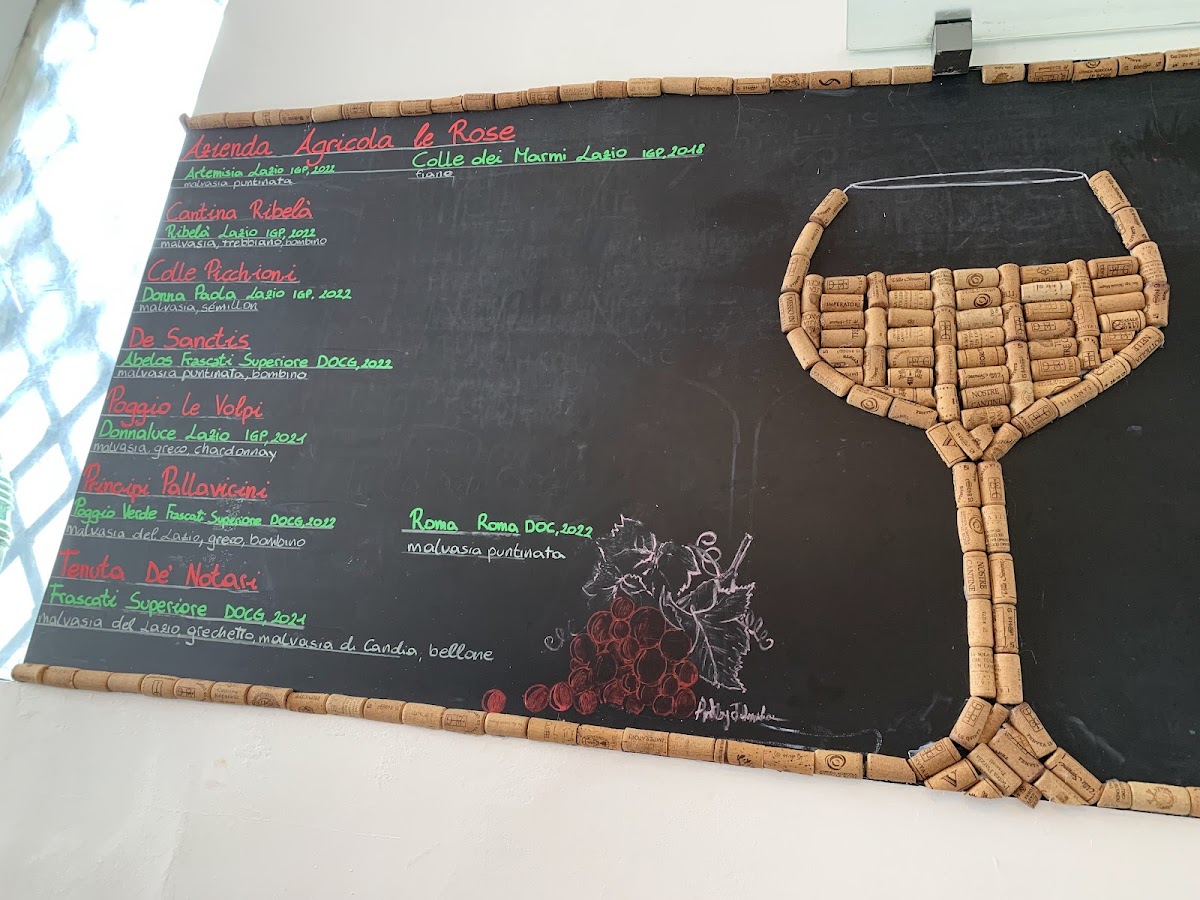 Azienda Agricola le Rose
Artemisia Lazio IGP, 2022
malvasia puntinata
Colle dei Marmi Lazio IGP, 2018
fiano
Cantina Ribelà
Ribelà Lazio IGP, 2022
malvasia, trebbiano, bombino
Colle Picchioni
Donna Paola Lazio IGP, 2022
malvasia, sémillon
De Sanctis
Abelos Frascati Superiore DOCG, 2022
malvasia puntinata, bombino
Poggio le Volpi
Donnaluce Lazio IGP, 2021
malvasia, greco, chardonnay
Principi Pallavicini
Poggio Verde Frascati Superiore DOCG, 2022
malvasia del Lazio, greco, bombino
Roma Roma DOC, 2022
malvasia puntinata
Tenuta De' Notari
Frascati Superiore DOCG, 2021
malvasia del Lazio grechetto, malvasia di Candia, bellone
IMPERATORI
NOSTRE
CANTINE
NOSTRE
CANTINE